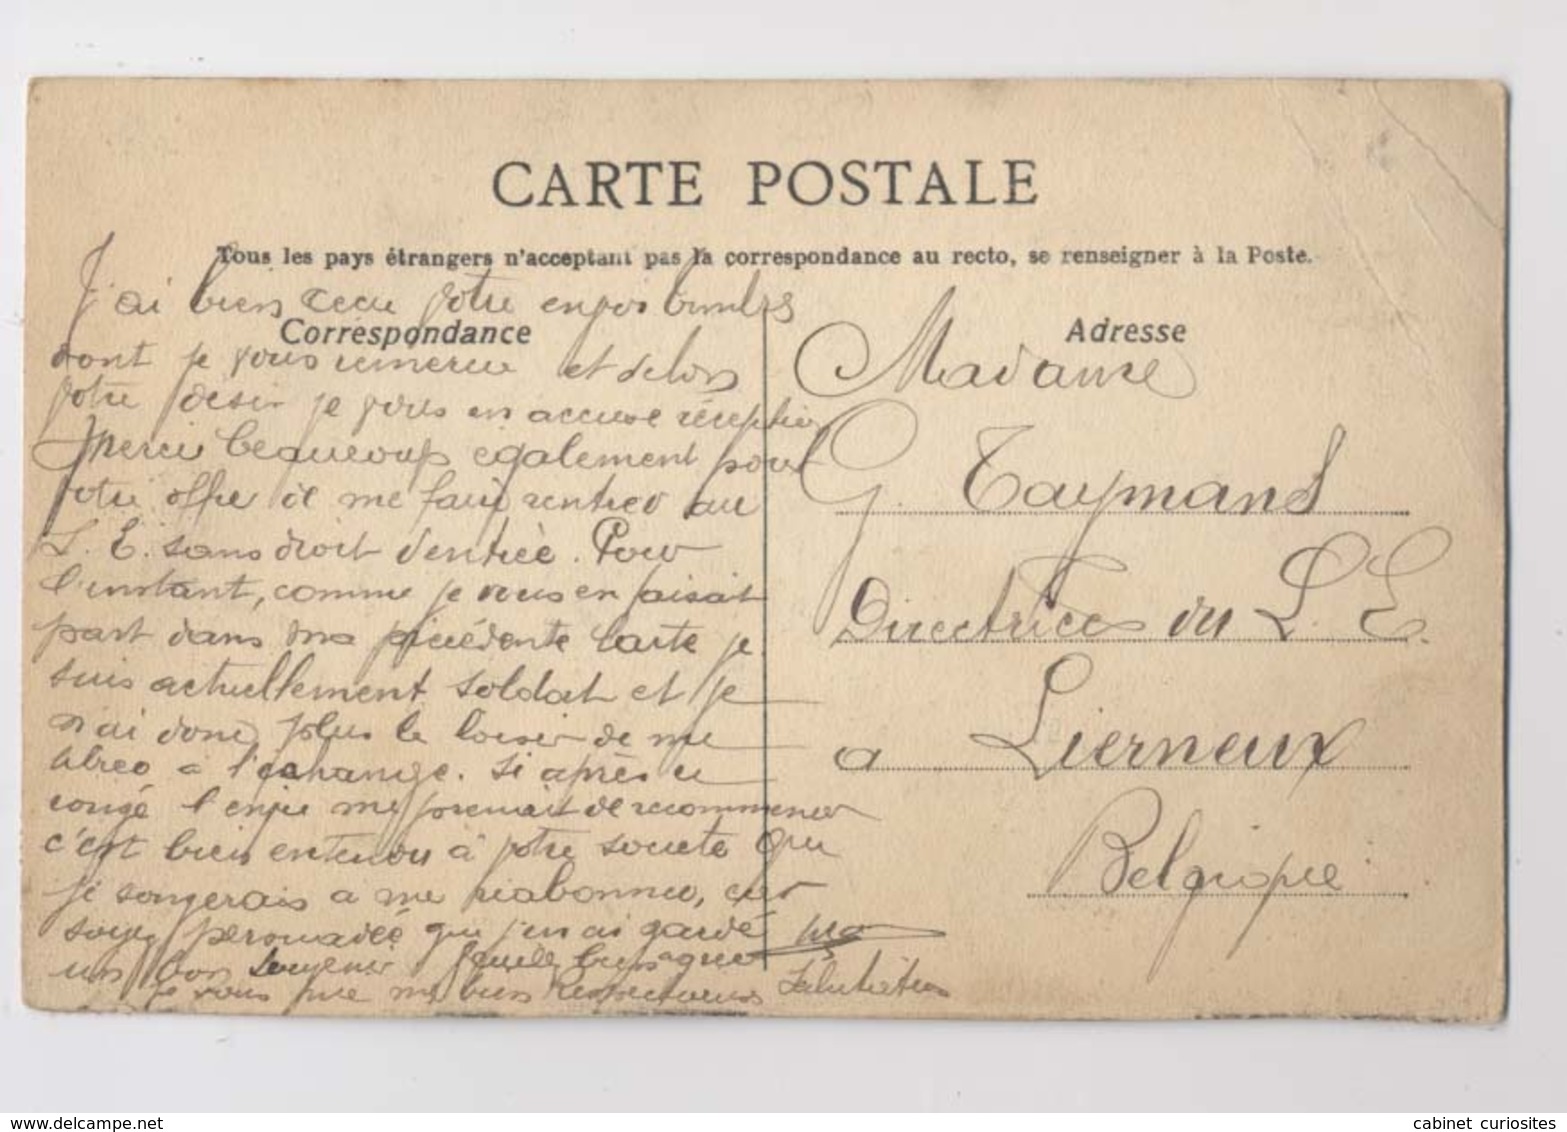 CARTE POSTALE
Tous les pays étrangers n'acceptant pas la correspondance au recto, se renseigner à la Poste.
Correspondance
J'ai bien recu votre envoi timbres
dont je vous remercie et selon
votre désir je vous en accuse réception
Merci beaucoup également pour
votre offre de me faire rentrer au
L. E. sans droit d'entrée. Pour
l'instant, comme je vous en faisait
part dans ma précédente carte je
suis actuellement soldat et je
n'ai donc plus le loisir de me
livrer à l'échange. Si après ce
congé l'envie me prenait de recommencer
c'est bien entendu à votre societé que
je songerais a me réabonner, car
soyez persuadée que j'en ai gardé
un bon souvenir
je vous prie mes bien respectueuses Salutations
Adresse
Madame
G. Taymans
Directrice du L. E.
a Lierneux
Belgique
cabinet curiosites